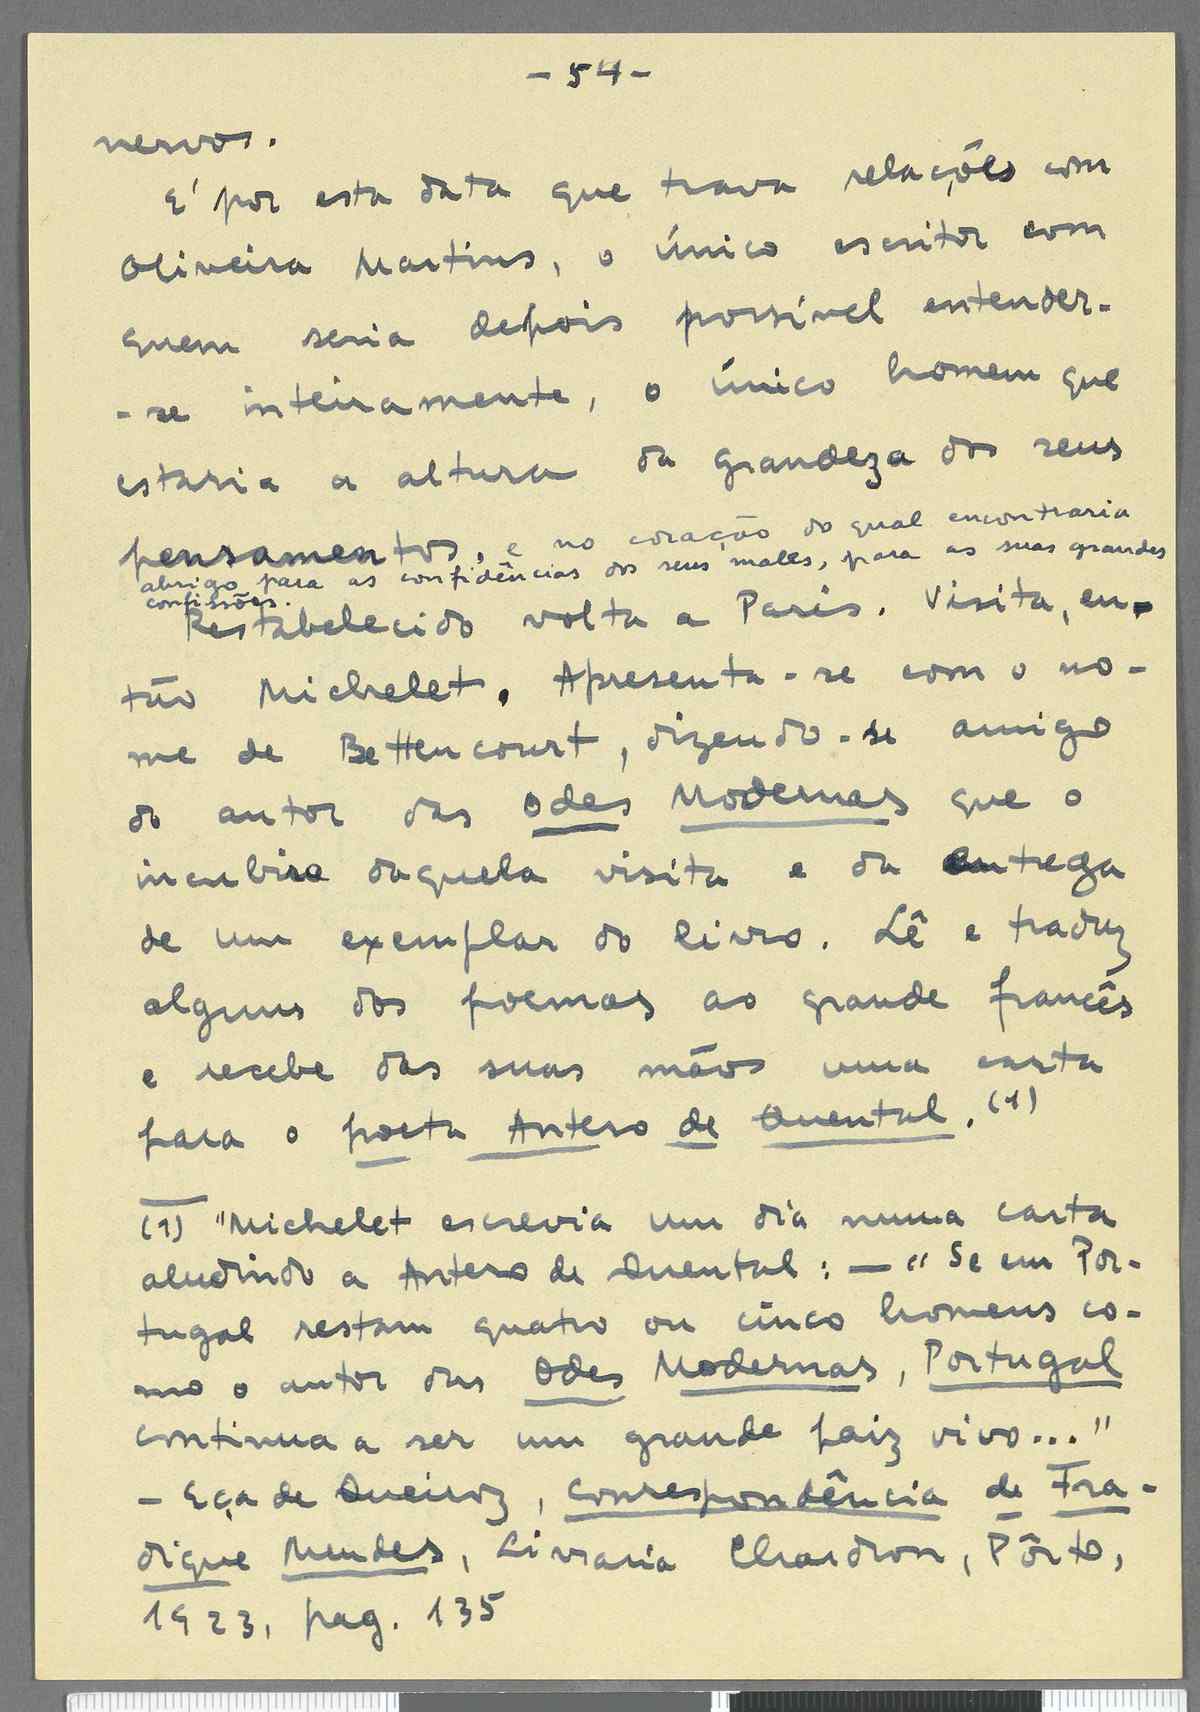 - 54 -
nervos.
É por esta data que trava relações com
Oliveira Martins, o único escritor com
quem seria depois possível entender-
-se inteiramente, o único homem que
estaria a altura da grandeza dos seus
pensamentos, e no coração do qual encontraria
abrigo para as confidências dos seus males, para as suas grandes
confissões.
Restabelecido volta a Paris. Visita, en-
tão Michelet. Apresenta-se com o no-
me de Bettencourt, dizendo-se amigo
do autor das Odes Modernas que o
incubira daquela visita e da entrega
de um exemplar do livro. Lê e traduz
alguns dos poemas ao grande francês
e recebe das suas mãos uma carta
para o poeta Antero de Quental. (1)
(1) "Michelet escrevia um dia numa carta
aludindo a Antero de Quental: — "Se em Por-
tugal restam quatro ou cinco homens co-
mo o autor das Odes Modernas, Portugal
continua a ser um grande paiz vivo..."
- Eça de Queiroz, Correspondência de Fra-
dique Mendes, Livraria Chardron, Pôrto,
1923, pag. 135